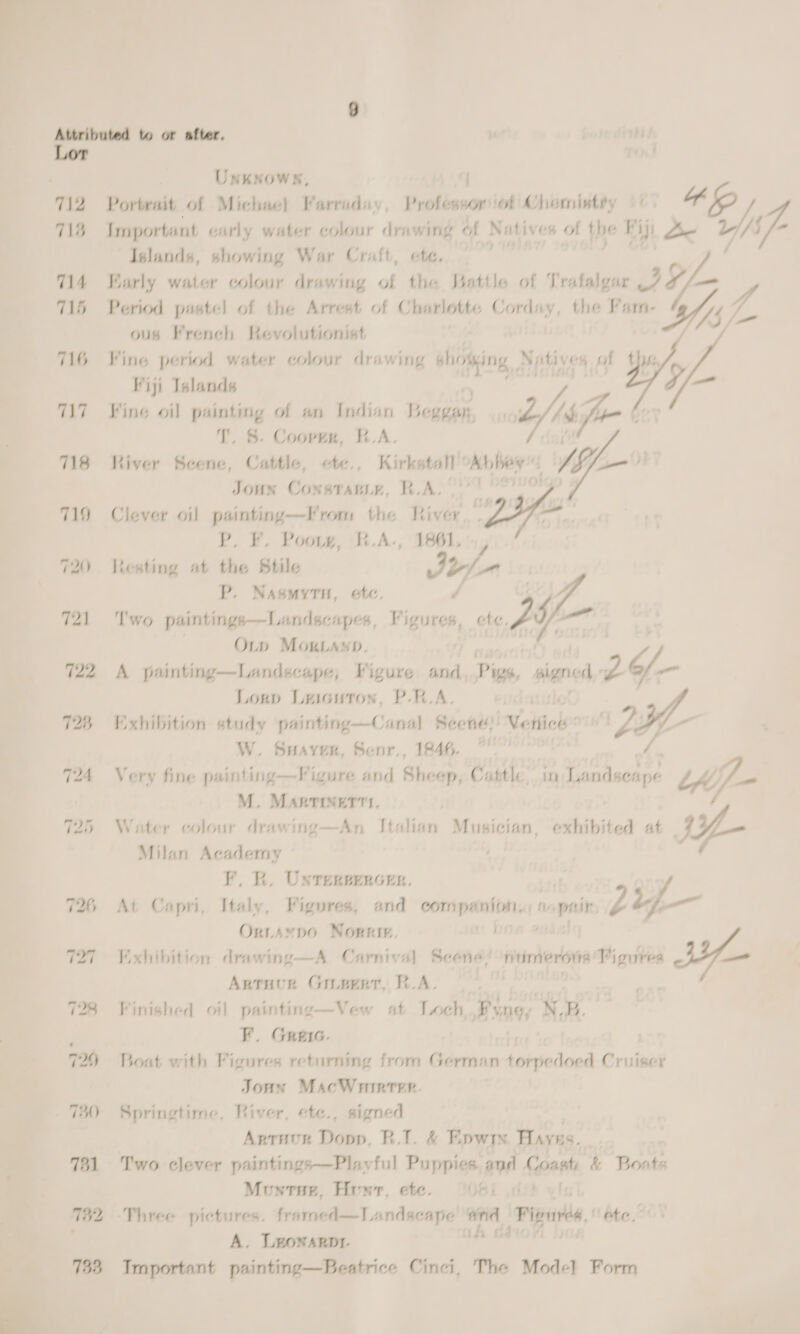 9
Attributed to or after.
Lot
Unknown.
712 Portrait of Michael Farraday, Professor of Chemistry
713 Important early water colour drawing of Natives of the Fiji
Islands, showing War Craft, etc.
714 Early water colour drawing of the Battle of Trafalgar
715 Period pastel of the Arrest of Charlotte Corday, the Fam-
ous French Revolutionist
716 Fine period water colour drawing showing Natives of the
Fiji Islands
717 Fine oil painting of an Indian Beggar,
T. S. Cooper, R.A.
718 River Scene, Cattle, etc., Kirkstall Abbey
John Constable, R.A.
719 Clever oil painting—From the River
P. F. Poole, R.A., 1861.
720 Resting at the Stile
P. Nasmyth, etc.
721 Two paintings—Landscapes, Figures, etc.
Old Morland.
722 A painting—Landscape, Figure and Pigs, signed
Lord Leighton, P.R.A.
723 Exhibition study painting—Canal Scene, Venice
W. Shayer, Senr., 1846.
724 Very fine painting—Figure and Sheep, Cattle, in Landscape
M. Martinetti.
725 Water colour drawing—An Italian Musician, exhibited at
Milan Academy
F. R. Unterberger.
726 At Capri, Italy, Figures, and companion, a pair
Orlando Norrie.
727 Exhibition drawing—A Carnival Scene, numerous Figures
Arthur Gilbert, R.A.
728 Finished oil painting—Vew at Loch Fyne, N.B.
F. Greig.
729 Boat with Figures returning from German torpedoed Cruiser
John MacWhirter.
730 Springtime, River, etc., signed
Arthur Dodd, R.I. & Edwin Hayes.
731 Two clever paintings—Playful Puppies and Coast & Boats
Munthe, Hunt, etc.
732 Three pictures, framed—Landscape and Figures, etc.
A. Leonardi.
733 Important painting—Beatrice Cinci, The Model Form